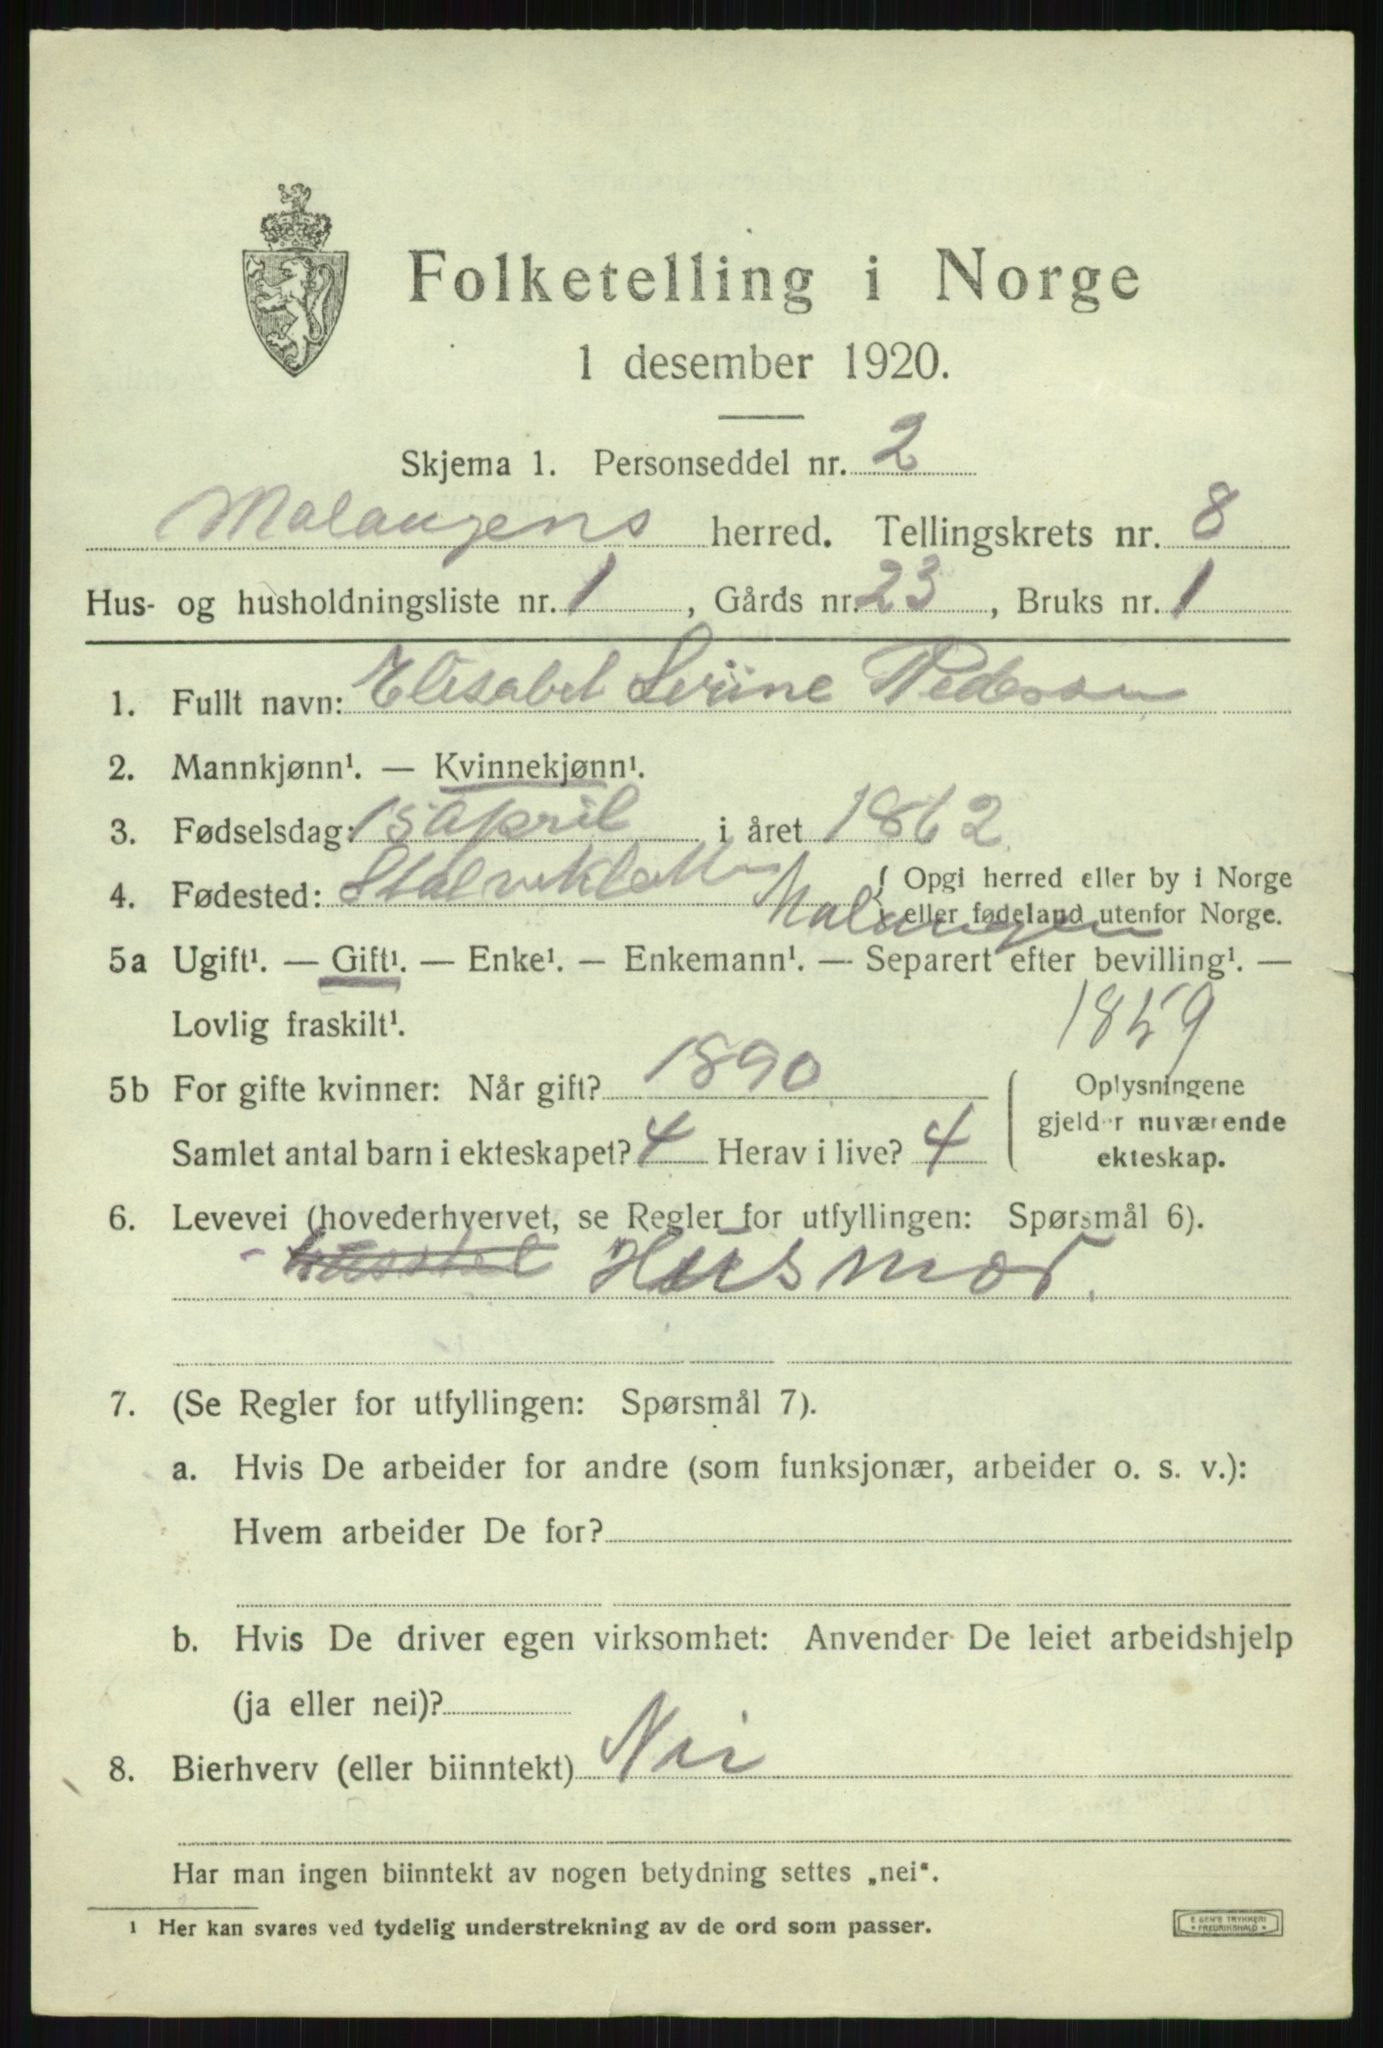 Folketelling i Norge
1 desember 1920.
Skjema 1. Personseddel nr. 2
Malangens herred. Tellingskrets nr. 8
Hus- og husholdningsliste nr. 1, Gårds nr. 23, Bruks nr. 1
1. Fullt navn: Elisabet Pedersen
2. Mannkjønn¹. — Kvinnekjønn¹.
3. Fødselsdag: 15 april i året 1862
4. Fødested: Malangen { Opgi herred eller by i Norge
eller fødeland utenfor Norge.
5a Ugift¹. — Gift¹. — Enke¹. — Enkemann¹. — Separert efter bevilling¹. —
Lovlig fraskilt¹.
1859
5b For gifte kvinner: Når gift? 1890 Oplysningene
gjelder nuværende
Samlet antal barn i ekteskapet? 4 Herav i live? 4 ekteskap.
6. Levevei (hovederhvervet, se Regler for utfyllingen: Spørsmål 6).
- husstel Husmor.
7. (Se Regler for utfyllingen: Spørsmål 7).
a. Hvis De arbeider for andre (som funksjonær, arbeider o. s. v.):
Hvem arbeider De for?
b. Hvis De driver egen virksomhet: Anvender De leiet arbeidshjelp
(ja eller nei)?
8. Bierhverv (eller biinntekt) Nei
Har man ingen biinntekt av nogen betydning settes „nei“.
¹ Her kan svares ved tydelig understrekning av de ord som passer.
E SEM'S TRYKKERI
FREDRIKSHALD